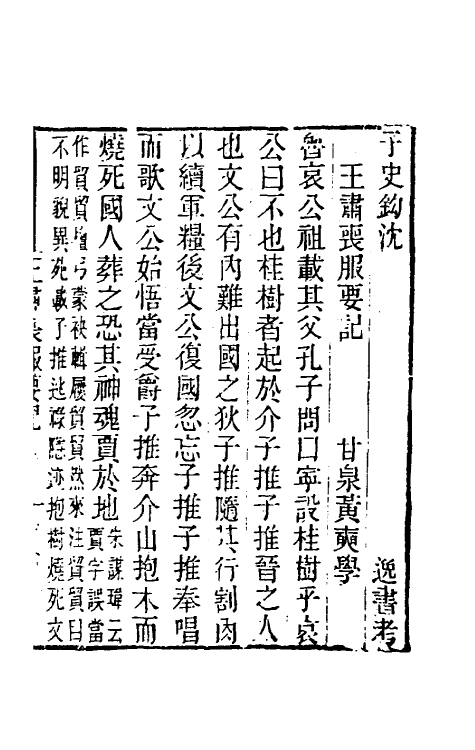 子史鈎沈 逸書考
王肅喪服要記 甘泉黃奭學
魯哀公祖載其父孔子問曰寧設桂樹乎哀
公曰不也桂樹者起於介子推子推晉之人
也文公有內難出國之狄子推隨其行割肉
以續軍糧後文公復國忽忘子推子推奉唱
而歌文公始悟當受爵子推奔介山抱木而
燒死國人葬之恐其神魂賈於地朱謀㙔云
賈字誤當
作貿貿檀弓蒙袂輯屨貿貿然來注貿貿目
不明貌異死載子推逃祿隱迹抱樹燒死文
王肅喪服要記